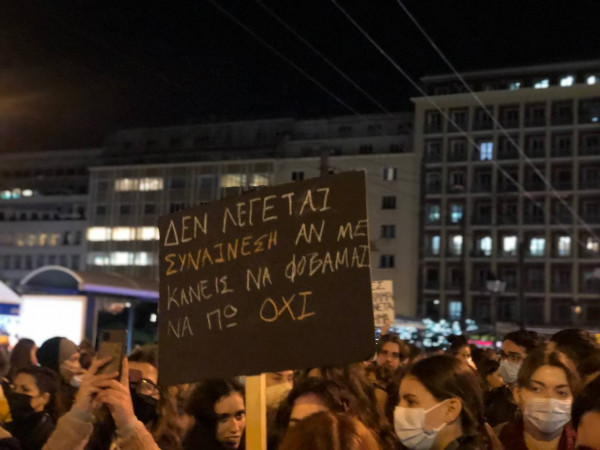 ΔΕΝ ΛΕΓΕΤΑΙ
ΣΥΝΑΙΝΕΣΗ ΑΝ ΜΕ
ΚΑΝΕΙΣ ΝΑ ΦΟΒΑΜΑΙ
ΝΑ ΠΩ ΟΧΙ